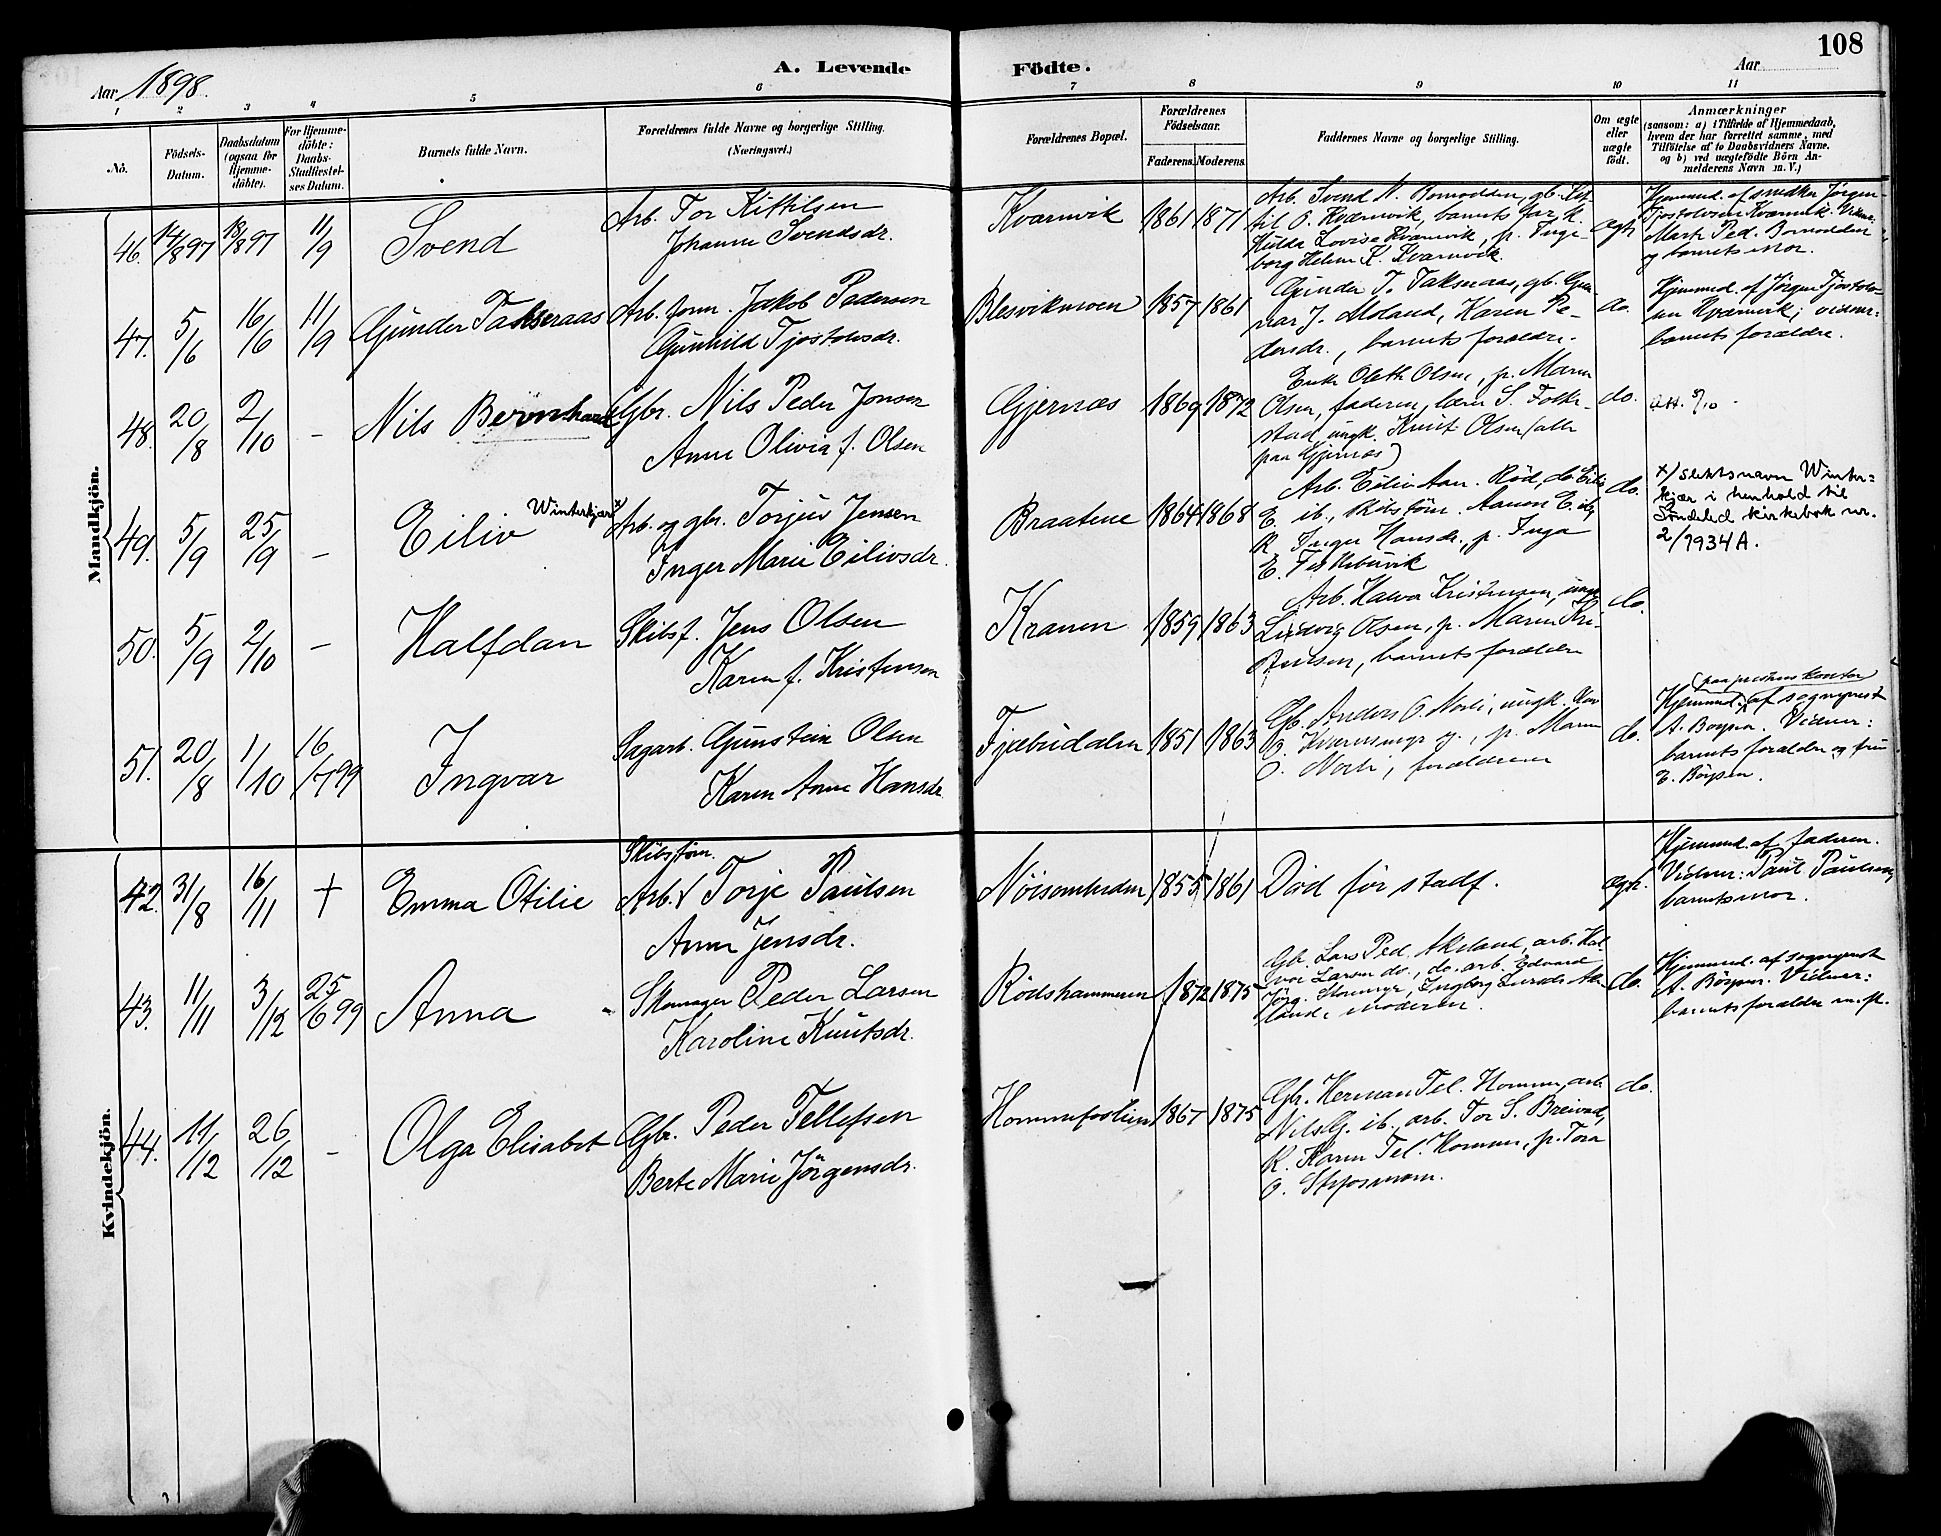 Aar 1898.
A. Levende
Födte.
Aar
108
1 2 3 4 5 6 7 8 9 10 11
No.
Födsels-
Datum.
Daabsdatum
(ogsaa for
Hjemme-
döbte).
For Hjemme-
döbte:
Daabs-
Stadfæstel-
ses Datum.
Barnets fulde Navn.
Forældrenes fulde Navne og borgerlige Stilling.
(Næringsvei.)
Forældrenes Bopæl.
Forældrenes
Födselsaar.
Faderens. Moderens.
Faddernes Navne og borgerlige Stilling.
Om ægte
eller
uægte
födt.
Anmærkninger
(saasom: a) i Tilfælde af Hjemmedaab,
hvem der har forrettet samme, med
Tilföielse af to Daabsvidners Navne,
og b) ved uægtefödte Börn An-
melderens Navn m. V.)
Mandkjön.
46. 14/8 97 18/8 97 11/9 Svend
Arb. Tor Kittilsen
Johanne Svendsdr.
Kvarnvik 1861 1871
Arb. Svend N. Bomodden, gb.
til O. Kvarnvik, barnets far, k.
Hulda Lovise Kvarnvik, p. Inge-
borg Helene K. Kvarnvik.
ægte
Hjemmed. af snedker Jörgen
Tjostolvsen Kvarnvik. Vidne:
Mart. Ped. Bomodden
og barnets mor.
47. 5/6 16/6 11/9 Gunder Takseraas
Arb. form. Jakob Pedersen
Gunhild Tjostolvsdr.
Blesvikmoen 1857 1861
Gunder T. Takseraas, gb. Gun-
nar J. Moland, Karen Pe-
dersdr., barnets forældre.
do.
Hjemmed. af Jörgen Tjostolv-
sen Kvarnvik; vidner:
barnets forældre.
48. 20/8 2/10 - Nils Bernhard
Gbr. Nils Peder Jensen
Anne Olivia f. Olsen
Gjernæs 1869 1872
Enke Oleth Olsen, p. Maren
Olsen, faderen, lærer S. Folke-
stad, ungk. Knut Olsen (alle
paa Gjernæs)
do.
Att.
49. 5/9 25/9 - Eiliv Winterkjær x)
Arb. og gbr. Torjus Jensen
Inger Marie Eilivsdr.
Braatene 1864 1868
Arb. Eiliv Aan. Röd, do. Eiliv
E. ib., skibstöm. Aanon E. ib.,
K. Inger Hansdr., p. Inga
E. Fiskebuvik
do.
x) slektsnavn Winter=
kjær i henhold til
Söndeled kirkebok nr.
2/1934 A.
50. 5/9 2/10 - Halfdan
Skibsf. Jens Olsen
Karen f. Kristensen
Kranen 1859 1863
Arb. Halvor Kristensen, ungk.
Ludvig Olsen, p. Maren Kri-
stensen, barnets forældre
do.
51. 20/8 1/10 16/7 99 Ingvar
Sagarb. Gunstein Olsen
Karen Anne Hansdr.
Fjelbudalen 1851 1863
Gb. Anders O. Norli, ungk.
p. Maren
O. Norli, forældrene
do.
(paa prestens kontor)
Hjemmed. af sogneprest
A. Börpsen. Vidner:
barnets forældre og fru
E. Börpsen.
Kvindekjön.
42. 31/8 16/11 † Emma Otilie
Skibstöm.
Arb. Torje Paulsen
Anne Jensdr.
Nöisomheden 1855 1861
Död för stadf.
ægte
Hjemmed. af faderen.
Vidner: Paul Paulsen,
barnets mor.
43. 11/11 3/12 25/6 99 Anna -
Skomager Peder Larsen
Karoline Knutsdr.
Rödshammeren 1872 1875
Gb. Lars Ped. Akeland, arb. Hal-
vor Larsen do., do. arb. Edvard
Jörg. Ingborg Larsdr. Ake-
land, moderen.
do.
Hjemmed. af sogneprest
A. Börpsen. Vidner:
barnets forældre m. fl.
44. 11/12 26/12 - Olga Elisabet
Gbr. Peder Tellefsen
Berte Marie Jörgensdr.
Hommefostveit 1867 1875
Gbr. Herman Tel. Homme, arb.
Nils G. ib., arb. Tor S. Breivand,
K. Karen Tel. Homme, p. Tora
O.
do.